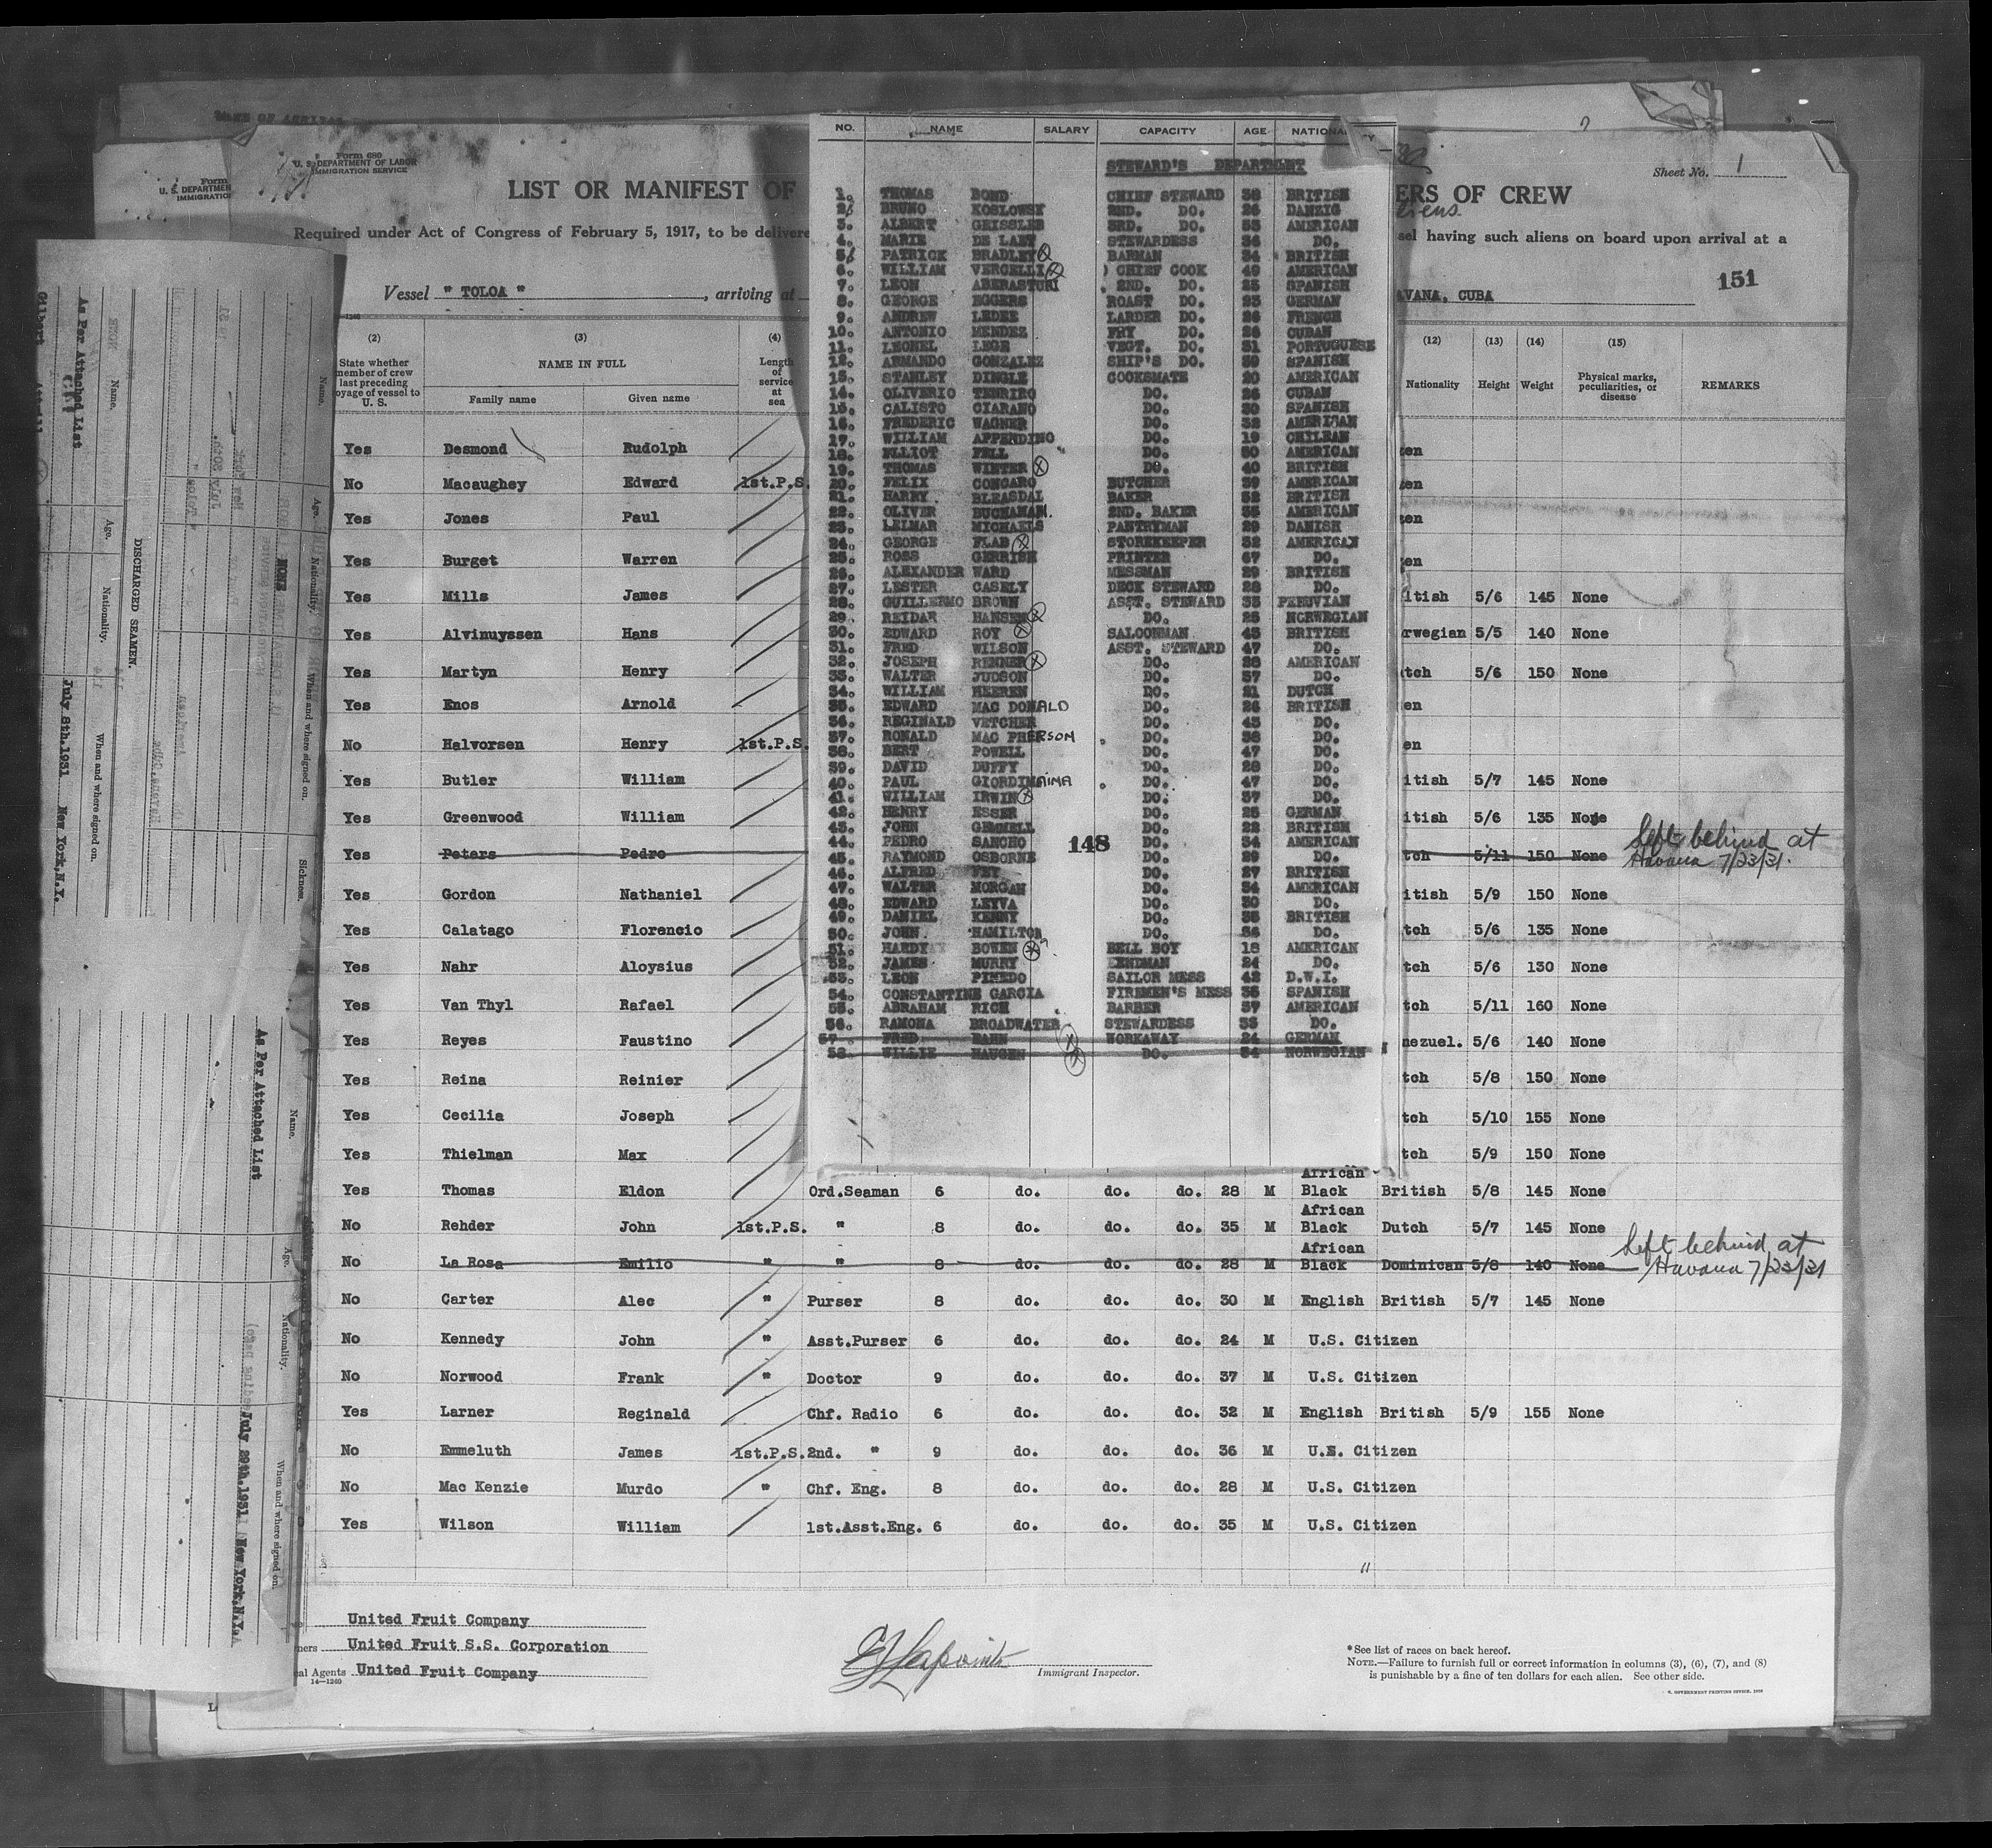 Form 680
U. S. DEPARTMENT OF LABOR
IMMIGRATION SERVICE
Form
U. S. DEPARTMEN
IMMIGRATION
LIST OR MANIFEST OF
ERS OF CREW
Sheet No. 1
Required under Act of Congress of February 5, 1917, to be delivere
sel having such aliens on board upon arrival at a
151
Vessel " TOLOA ", arriving at
AVANA, CUBA
(2) (3) (4)
State whether member of crew last preceding oyage of vessel to U. S.
NAME IN FULL
Family name Given name
Length of service at sea
(12) (13) (14) (15)
Nationality Height Weight Physical marks, peculiarities, or disease REMARKS
Yes Desmond Rudolph zen
No Macaughey Edward 1st.P.S. zen
Yes Jones Paul zen
Yes Burget Warren zen
Yes Mills James itish 5/6 145 None
Yes Alvinuyssen Hans rwegian 5/5 140 None
Yes Martyn Henry tch 5/6 150 None
Yes Enos Arnold en
No Halvorsen Henry 1st.P.S. en
Yes Butler William itish 5/7 145 None
Yes Greenwood William itish 5/6 135 None
Yes Peters Pedro tch 5/11 150 None Left behind at Havana 7/23/31.
Yes Gordon Nathaniel itish 5/9 150 None
Yes Calatago Florencio tch 5/6 135 None
Yes Nahr Aloysius tch 5/6 130 None
Yes Van Thyl Rafael tch 5/11 160 None
Yes Reyes Faustino nezuel. 5/6 140 None
Yes Reina Reinier tch 5/8 150 None
Yes Cecilia Joseph tch 5/10 155 None
Yes Thielman Max tch 5/9 150 None
Yes Thomas Eldon Ord.Seaman 6 do. do. do. 28 M African Black British 5/8 145 None
No Rehder John 1st.P.S. " 8 do. do. do. 35 M African Black Dutch 5/7 145 None
No La Rosa Emilio " " 8 do. do. do. 28 M African Black Dominican 5/8 140 None Left behind at Havana 7/23/31
No Carter Alec " Purser 8 do. do. do. 30 M English British 5/7 145 None
No Kennedy John " Asst.Purser 6 do. do. do. 24 M U.S. Citizen
No Norwood Frank " Doctor 9 do. do. do. 37 M U.S. Citizen
Yes Larner Reginald Chf. Radio 6 do. do. do. 32 M English British 5/9 155 None
No Emmeluth James 1st.P.S. 2nd. " 9 do. do. do. 36 M U.S. Citizen
No Mac Kenzie Murdo " Chf. Eng. 8 do. do. do. 28 M U.S. Citizen
Yes Wilson William 1st.Asst.Eng. 6 do. do. do. 35 M U.S. Citizen
United Fruit Company
ners United Fruit S.S. Corporation
al Agents United Fruit Company
14—1269
Immigrant Inspector.
*See list of races on back hereof.
NOTE.—Failure to furnish full or correct information in columns (3), (6), (7), and (8)
is punishable by a fine of ten dollars for each alien. See other side.
NO. NAME SALARY CAPACITY AGE NATIONA
STEWARD'S DEPARTMENT
1. THOMAS BOND CHIEF STEWARD 38 BRITISH
2. BRUNO KOSLOWSKY 2ND. DO. 26 DANZIG
3. ALBERT GEISSLER 3RD. DO. 53 AMERICAN
4. MARIE DE LAET STEWARDESS 34 DO.
5. PATRICK BRADLEY BARMAN 34 BRITISH
6. WILLIAM VERCELLI CHIEF COOK 49 AMERICAN
7. LEON ABERASTURI 2ND. DO. 25 SPANISH
8. GEORGE EGGERS ROAST DO. 23 GERMAN
9. ANDREW LEDEE LARDER DO. 26 FRENCH
10. ANTONIO MENDEZ FRY DO. 26 CUBAN
11. LEONEL LEGE VEGT. DO. 31 PORTUGUESE
12. ARMANDO GONZALEZ SHIP'S DO. 39 SPANISH
13. STANLEY DINGLE COOKSMATE 20 AMERICAN
14. OLIVERIO TENRIRO DO. 26 CUBAN
15. CALISTO CIARANO DO. 30 SPANISH
16. FREDERIC WAGNER DO. 32 AMERICAN
17. WILLIAM APPENDINO DO. 19 CHILEAN
18. ELLIOT FELL DO. 50 AMERICAN
19. THOMAS WINTER DO. 40 BRITISH
20. FELIX CONGARO BUTCHER 39 AMERICAN
21. HARRY BLEASDAL BAKER 52 BRITISH
22. OLIVER BUCHANAN. 2ND. BAKER 35 AMERICAN
23. LELMAR MICHAELS PANTRYMAN 29 DANISH
24. GEORGE FLAB STOREKEEPER 32 AMERICAN
25. ROSS GERRISH PRINTER 67 DO.
26. ALEXANDER WARD MESSMAN 29 BRITISH
27. LESTER CASELY DECK STEWARD 28 DO.
28. GUILLERMO BROWN ASST. STEWARD 33 PERUVIAN
29. REIDAR HANSEN DO. 25 NORWEGIAN
30. EDWARD ROY SALOONMAN 45 BRITISH
31. FRED WILSON ASST. STEWARD 47 DO.
32. JOSEPH RENNER DO. 28 AMERICAN
33. WALTER JUDSON DO. 57 DO.
34. WILLIAM HEEREN DO. 21 DUTCH
35. EDWARD MAC DONALD DO. 26 BRITISH
36. REGINALD VETCHER DO. 45 DO.
37. RONALD MAC PHERSON DO. 38 DO.
38. BERT POWELL DO. 47 DO.
39. DAVID DUFFY DO. 28 DO.
40. PAUL GIORDIMAINA DO. 47 DO.
41. WILLIAM IRWIN DO. 37 DO.
42. HENRY ESSER DO. 25 GERMAN
43. JOHN GEMMELL DO. 22 BRITISH
44. PEDRO SANCHO DO. 34 AMERICAN
148
45. RAYMOND OSBORNE DO. 29 DO.
46. ALFRED FEY DO. 27 BRITISH
47. WALTER MORGAN DO. 34 AMERICAN
48. EDWARD LEYVA DO. 30 DO.
49. DANIEL KENNY DO. 35 BRITISH
50. JOHN. HAMILTON DO. 36 DO.
51. HARDY BOWEN BELL BOY 18 AMERICAN
52. JAMES MURRY 24 DO.
53. LEON PINEDO SAILOR MESS 42 D.W.I.
54. CONSTANTINE GARCIA FIREMEN'S MESS 35 SPANISH
55. ABRAHAM RICH BARBER 57 AMERICAN
56. RAMONA BROADWATER STEWARDESS 53 DO.
57. FRED HAHN WORKAWAY 24 GERMAN
58. WILLIE HAUGEN DO. 34 NORWEGIAN
DISCHARGED SEAMEN.
Name. Age. Nationality. When and where signed on.
As Per Attached List
July 8th.1931 New York,N.Y.
Name. Age. Nationality. When and where signed on. Sickness.
Name. Age. Nationality. When and where signed on.
As Per Attached List
July 29th.1931 New York,N.Y.